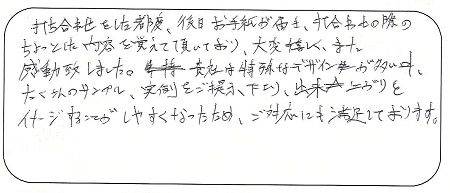 打ち合わせをした都度、後日お手紙が届き、打ち合わせの際の
ちょっとした内容を覚えて頂いており、大変嬉しく、また
感動致しました。貴社は特殊なデザインが多い中、
たくさんのサンプル、実例をご提示下さり、出来上がりを
イメージすることがしやすくなったため、ご対応にも満足しております。